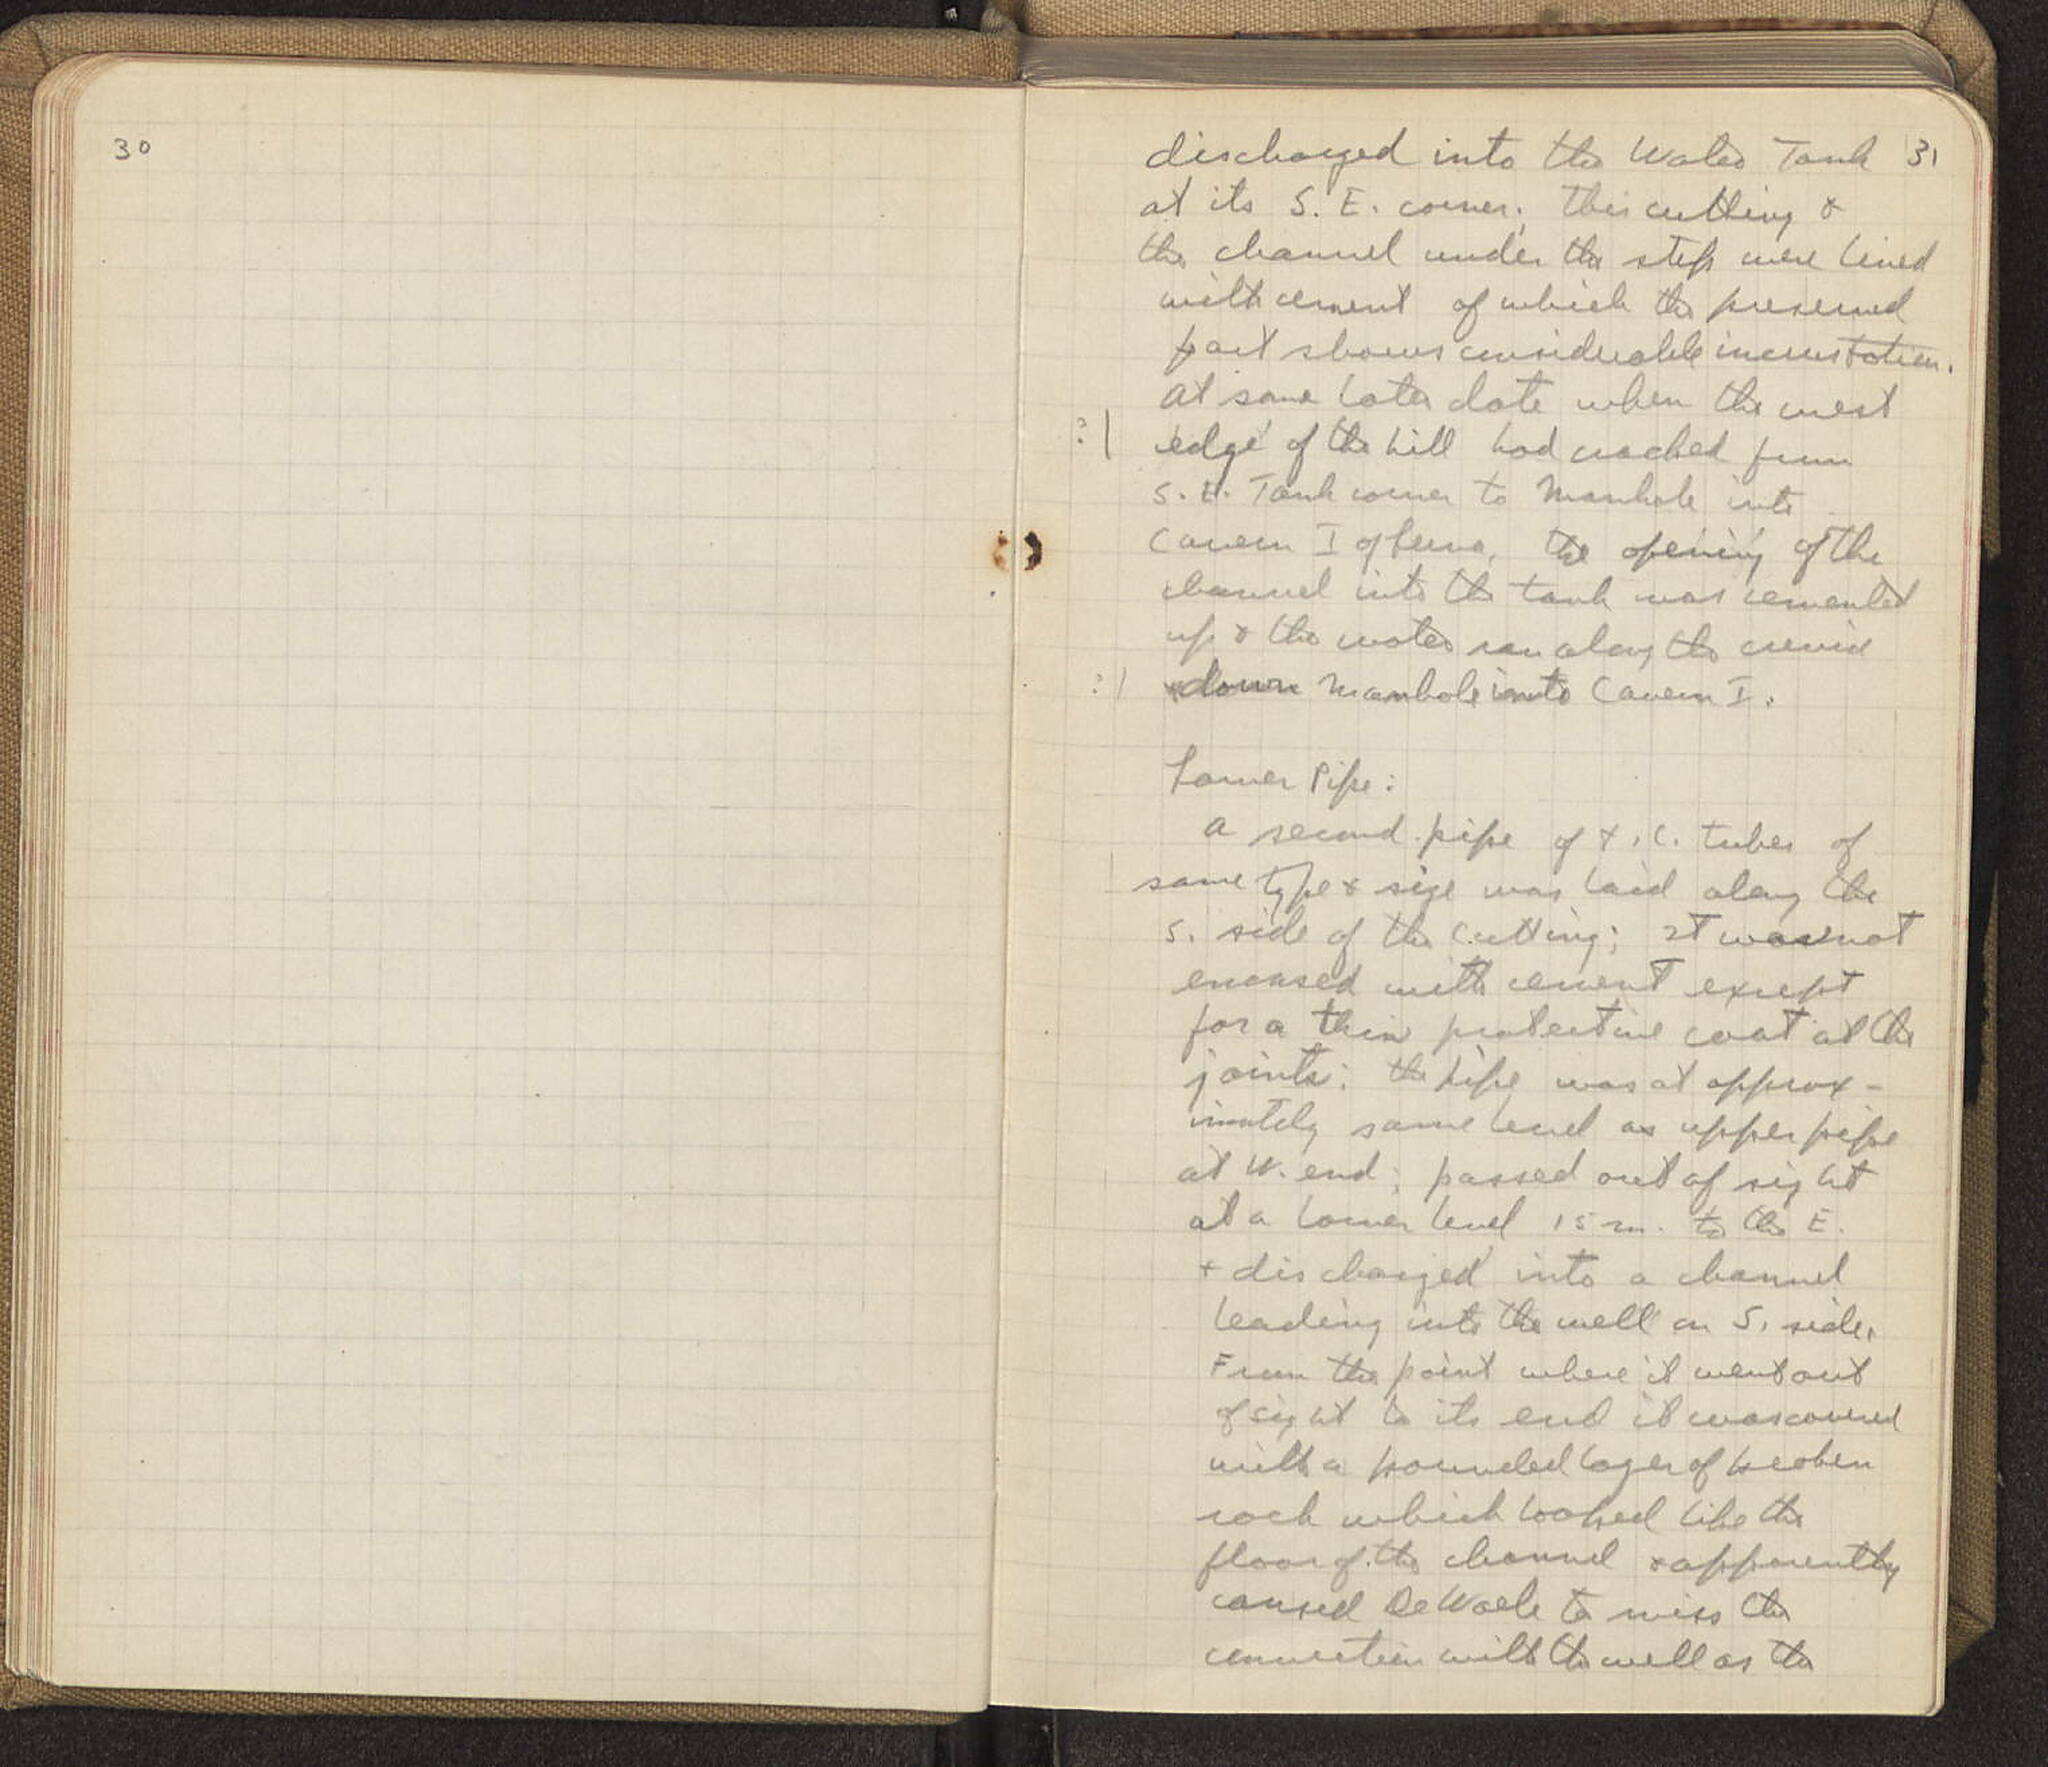 30
31
discharged into the Water Tank
at its S. E. corner; This cutting &
the channel under the steps were lined
with cement of which the preserved
part shows considerable incrustation.
At some later date when the west
:| edge of the hill had cracked from
S. E. Tank corner to Manhole into
Cavern I the opening of the
channel into the tank was cemented
up & the water ran along the crevice
:| down Manhole into Cavern I.
Lower Pipe:
A second pipe of t.c. tubes of
same type & size was laid along the
S. side of the cutting; It was not
encased with cement except
for a thin protective coat at the
joints; the pipe was at approx-
imately same level as upper pipe
at W. end; passed out of sight
at a lower level 15 m. to the E.
+ discharged into a channel
leading into the well on S. side.
From the point where it went out
of sight to its end it was covered
with a pounded layer of broken
rock which looked like the
floor of the channel & apparently
caused De Waele to miss the
connection with the well as the